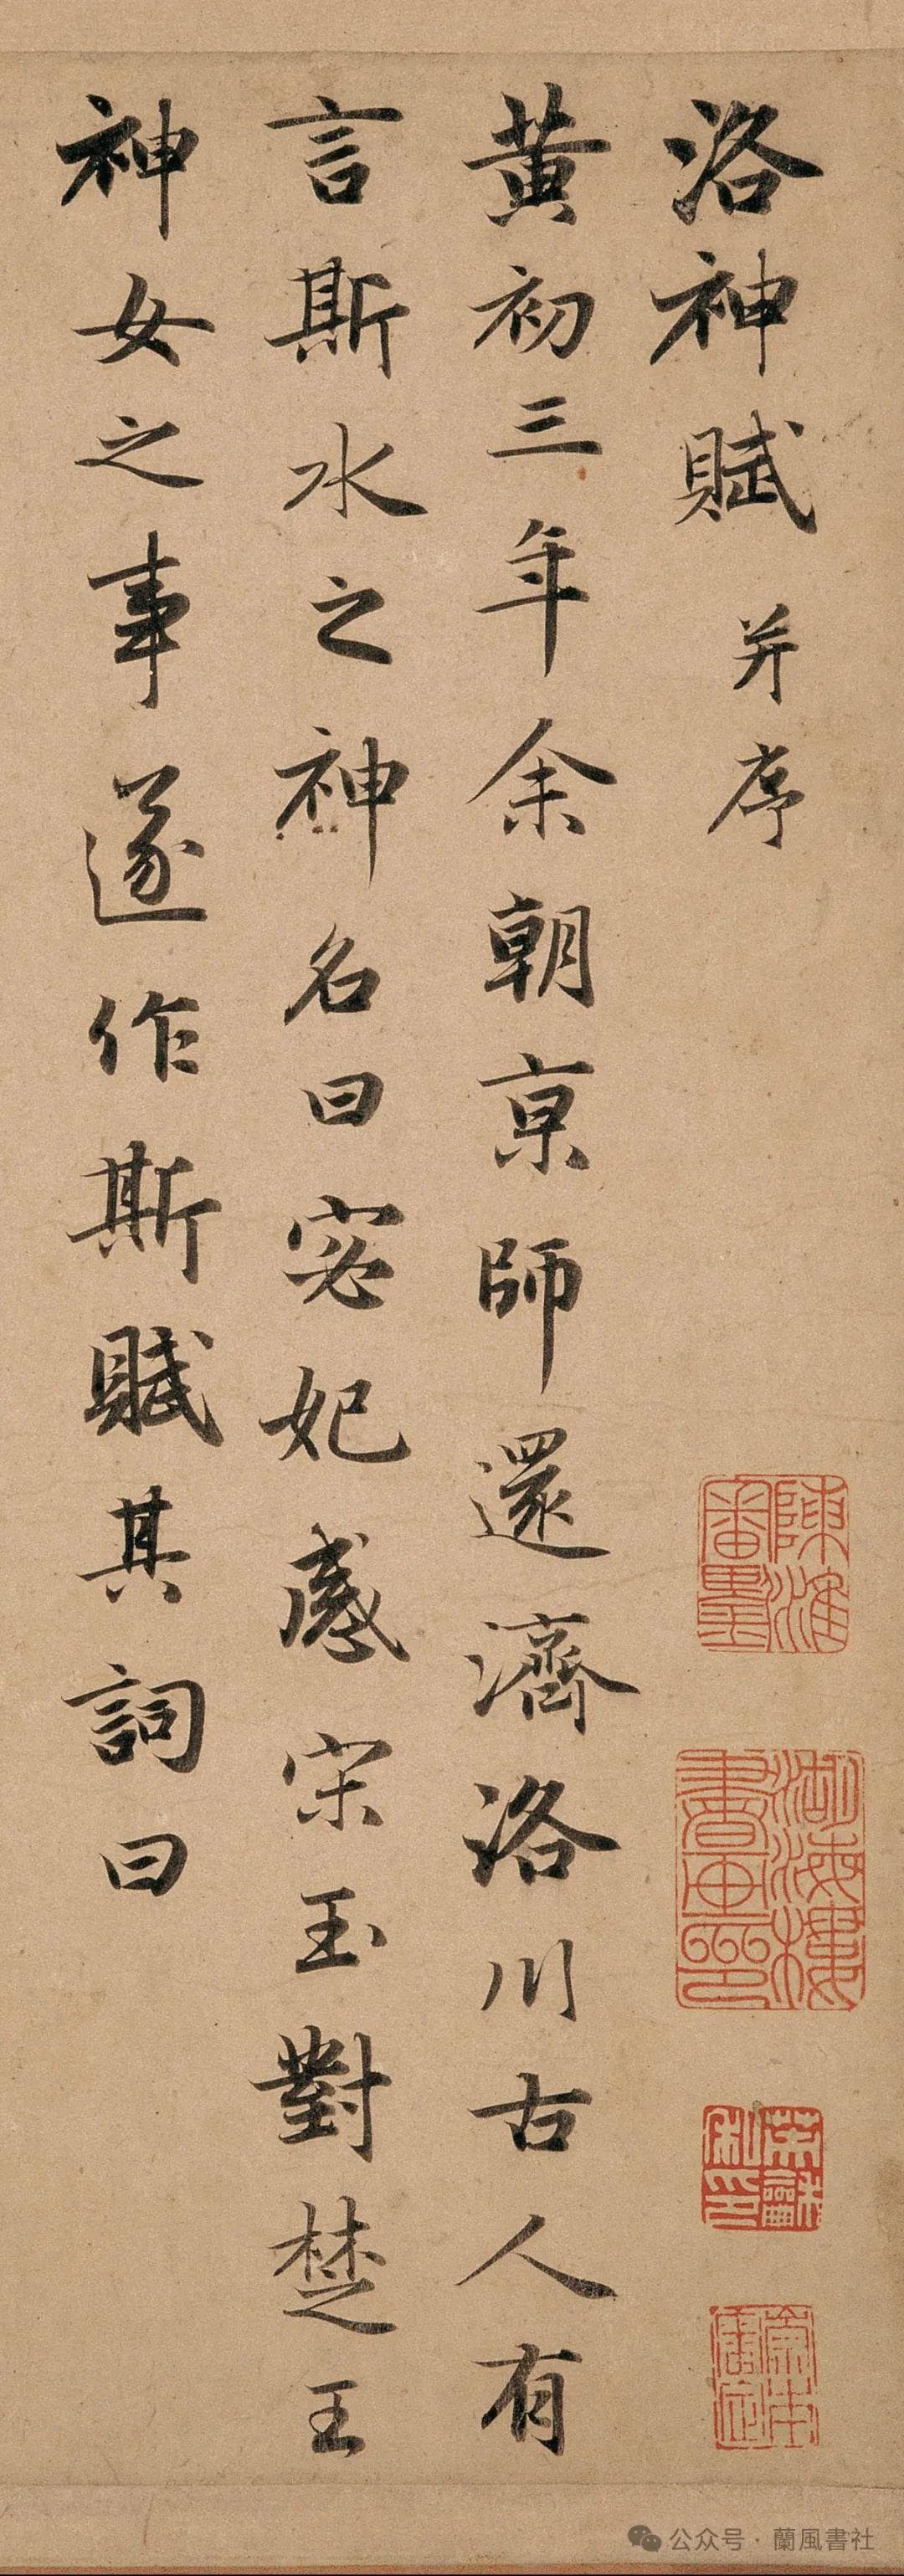 洛神賦 并序
黄初三年余朝京師還濟洛川古人有
言斯水之神名曰宓妃感宋玉對楚王
神女之事遂作斯賦其詞曰
公众号 · 蘭風書社